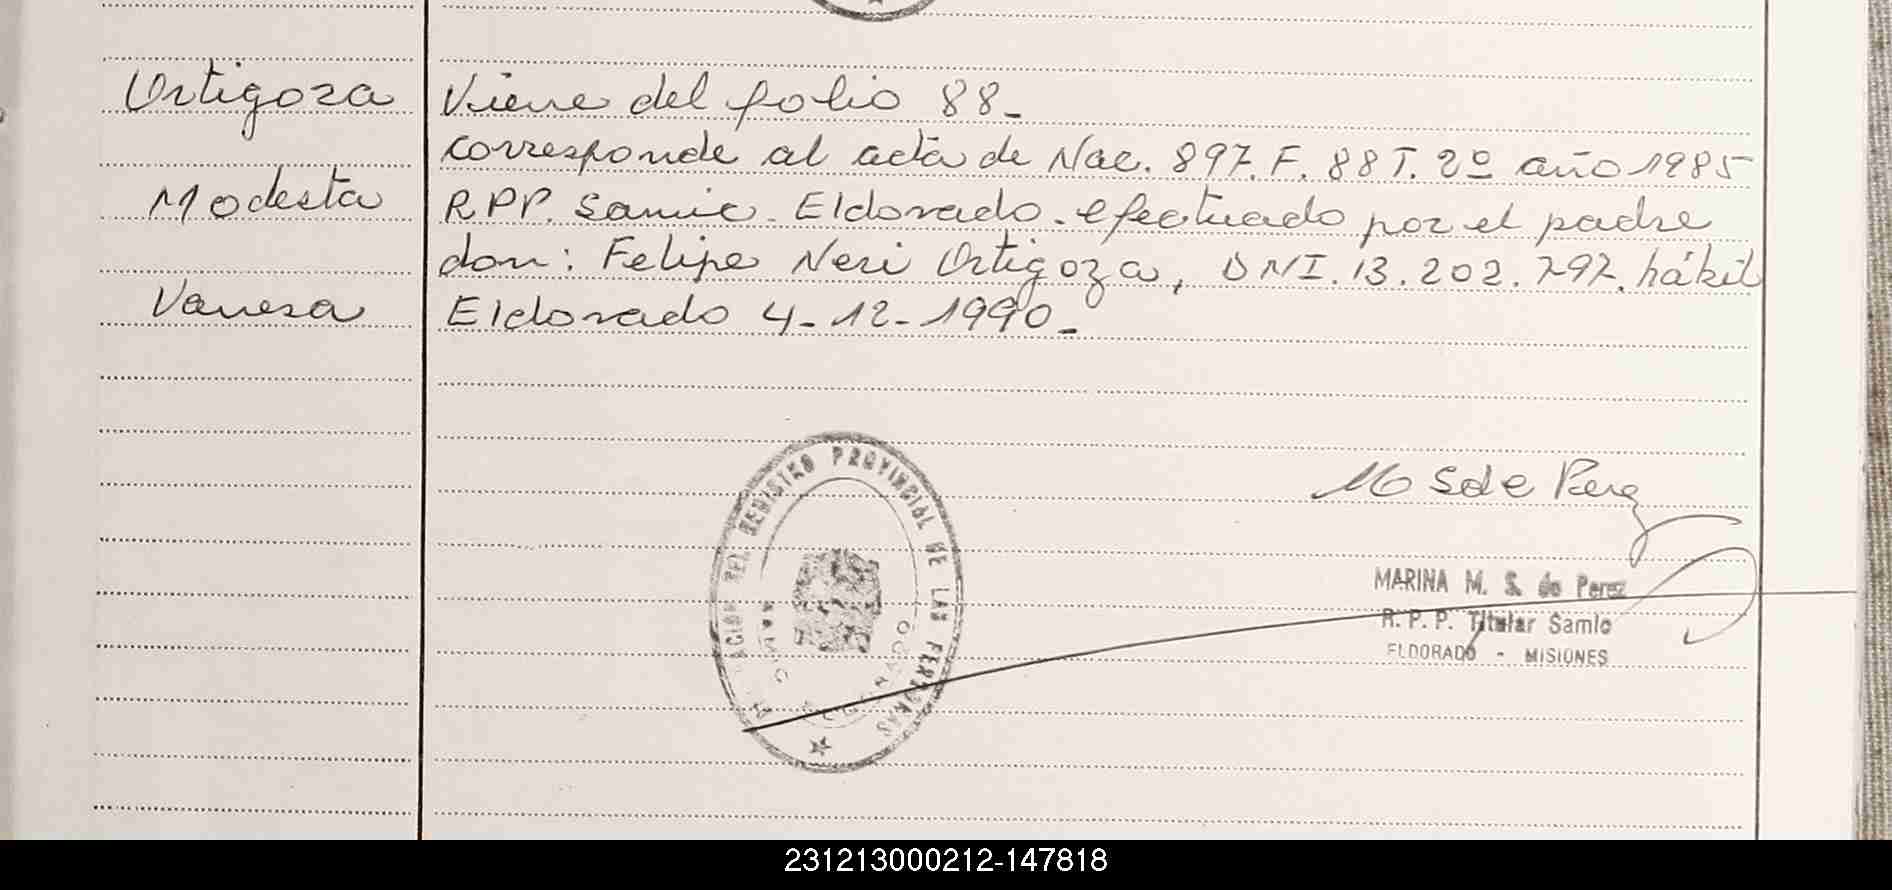 Ortigoza
Modesta
Vanesa
Viene del folio 88_
corresponde al acta de Nac. 897. F. 88 T. 2º año 1985
R.P.P. Samic. Eldorado. efectuado por el padre
don: Felipe Neri Ortigoza, DNI. 13.202.797. hábil
Eldorado 4-12-1990_
DEL REGISTRO PROVINCIAL DE LAS PERSONAS
SAMIC
ELDORADO
M S de Perez
MARINA M. S. de Perez
R. P. P. Titular Samic
ELDORADO - MISIONES
231213000212-147818